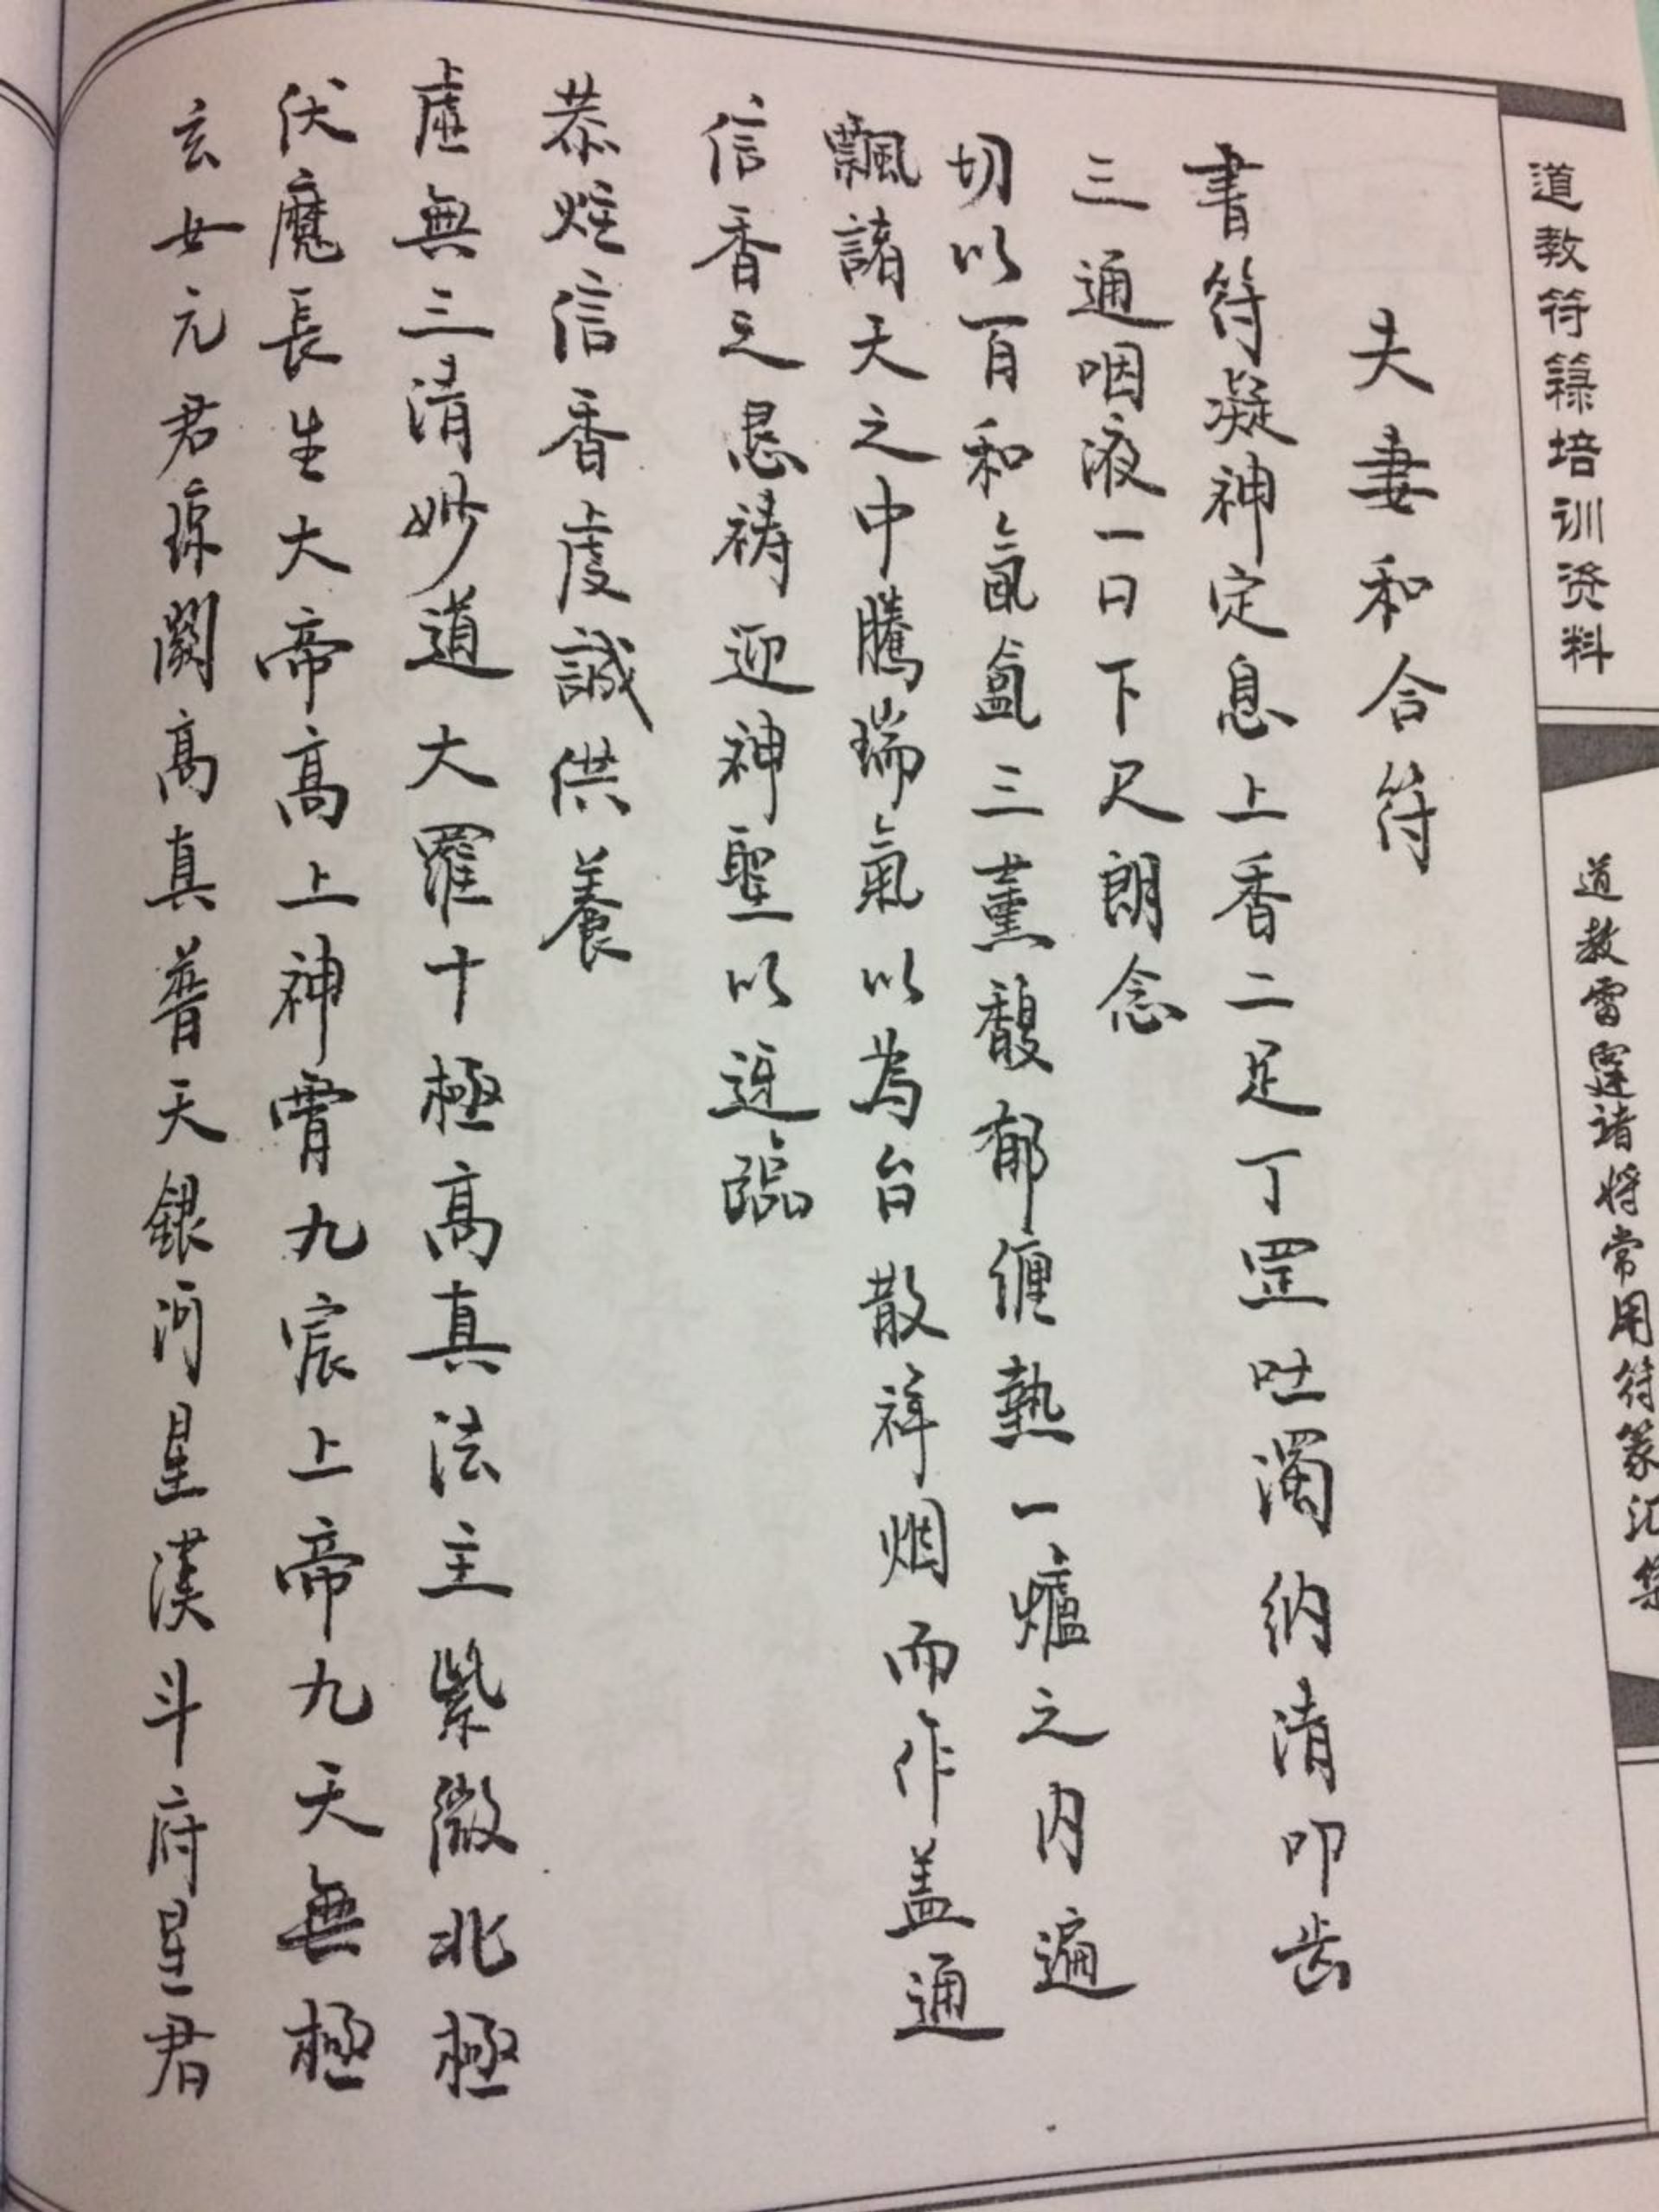 道教符籙培训资料
道教雷霆诸将常用符篆汇集
夫妻和合符
書符凝神定息上香二足丁罡吐濁纳清叩齿
三通咽液一口下尺朗念
切以百和氤氲三薰馥郁缠热一爐之内遍
飄諸天之中騰瑞氣以為台散祥烟而作盖通
信香之恳祷迎神聖以迓臨
恭炷信香虔誠供養
虚無三清妙道大羅十極高真法主紫微北極
伏魔長生大帝高上神霄九宸上帝九天無極
玄女元君琼闕高真普天銀河星漢斗府星君